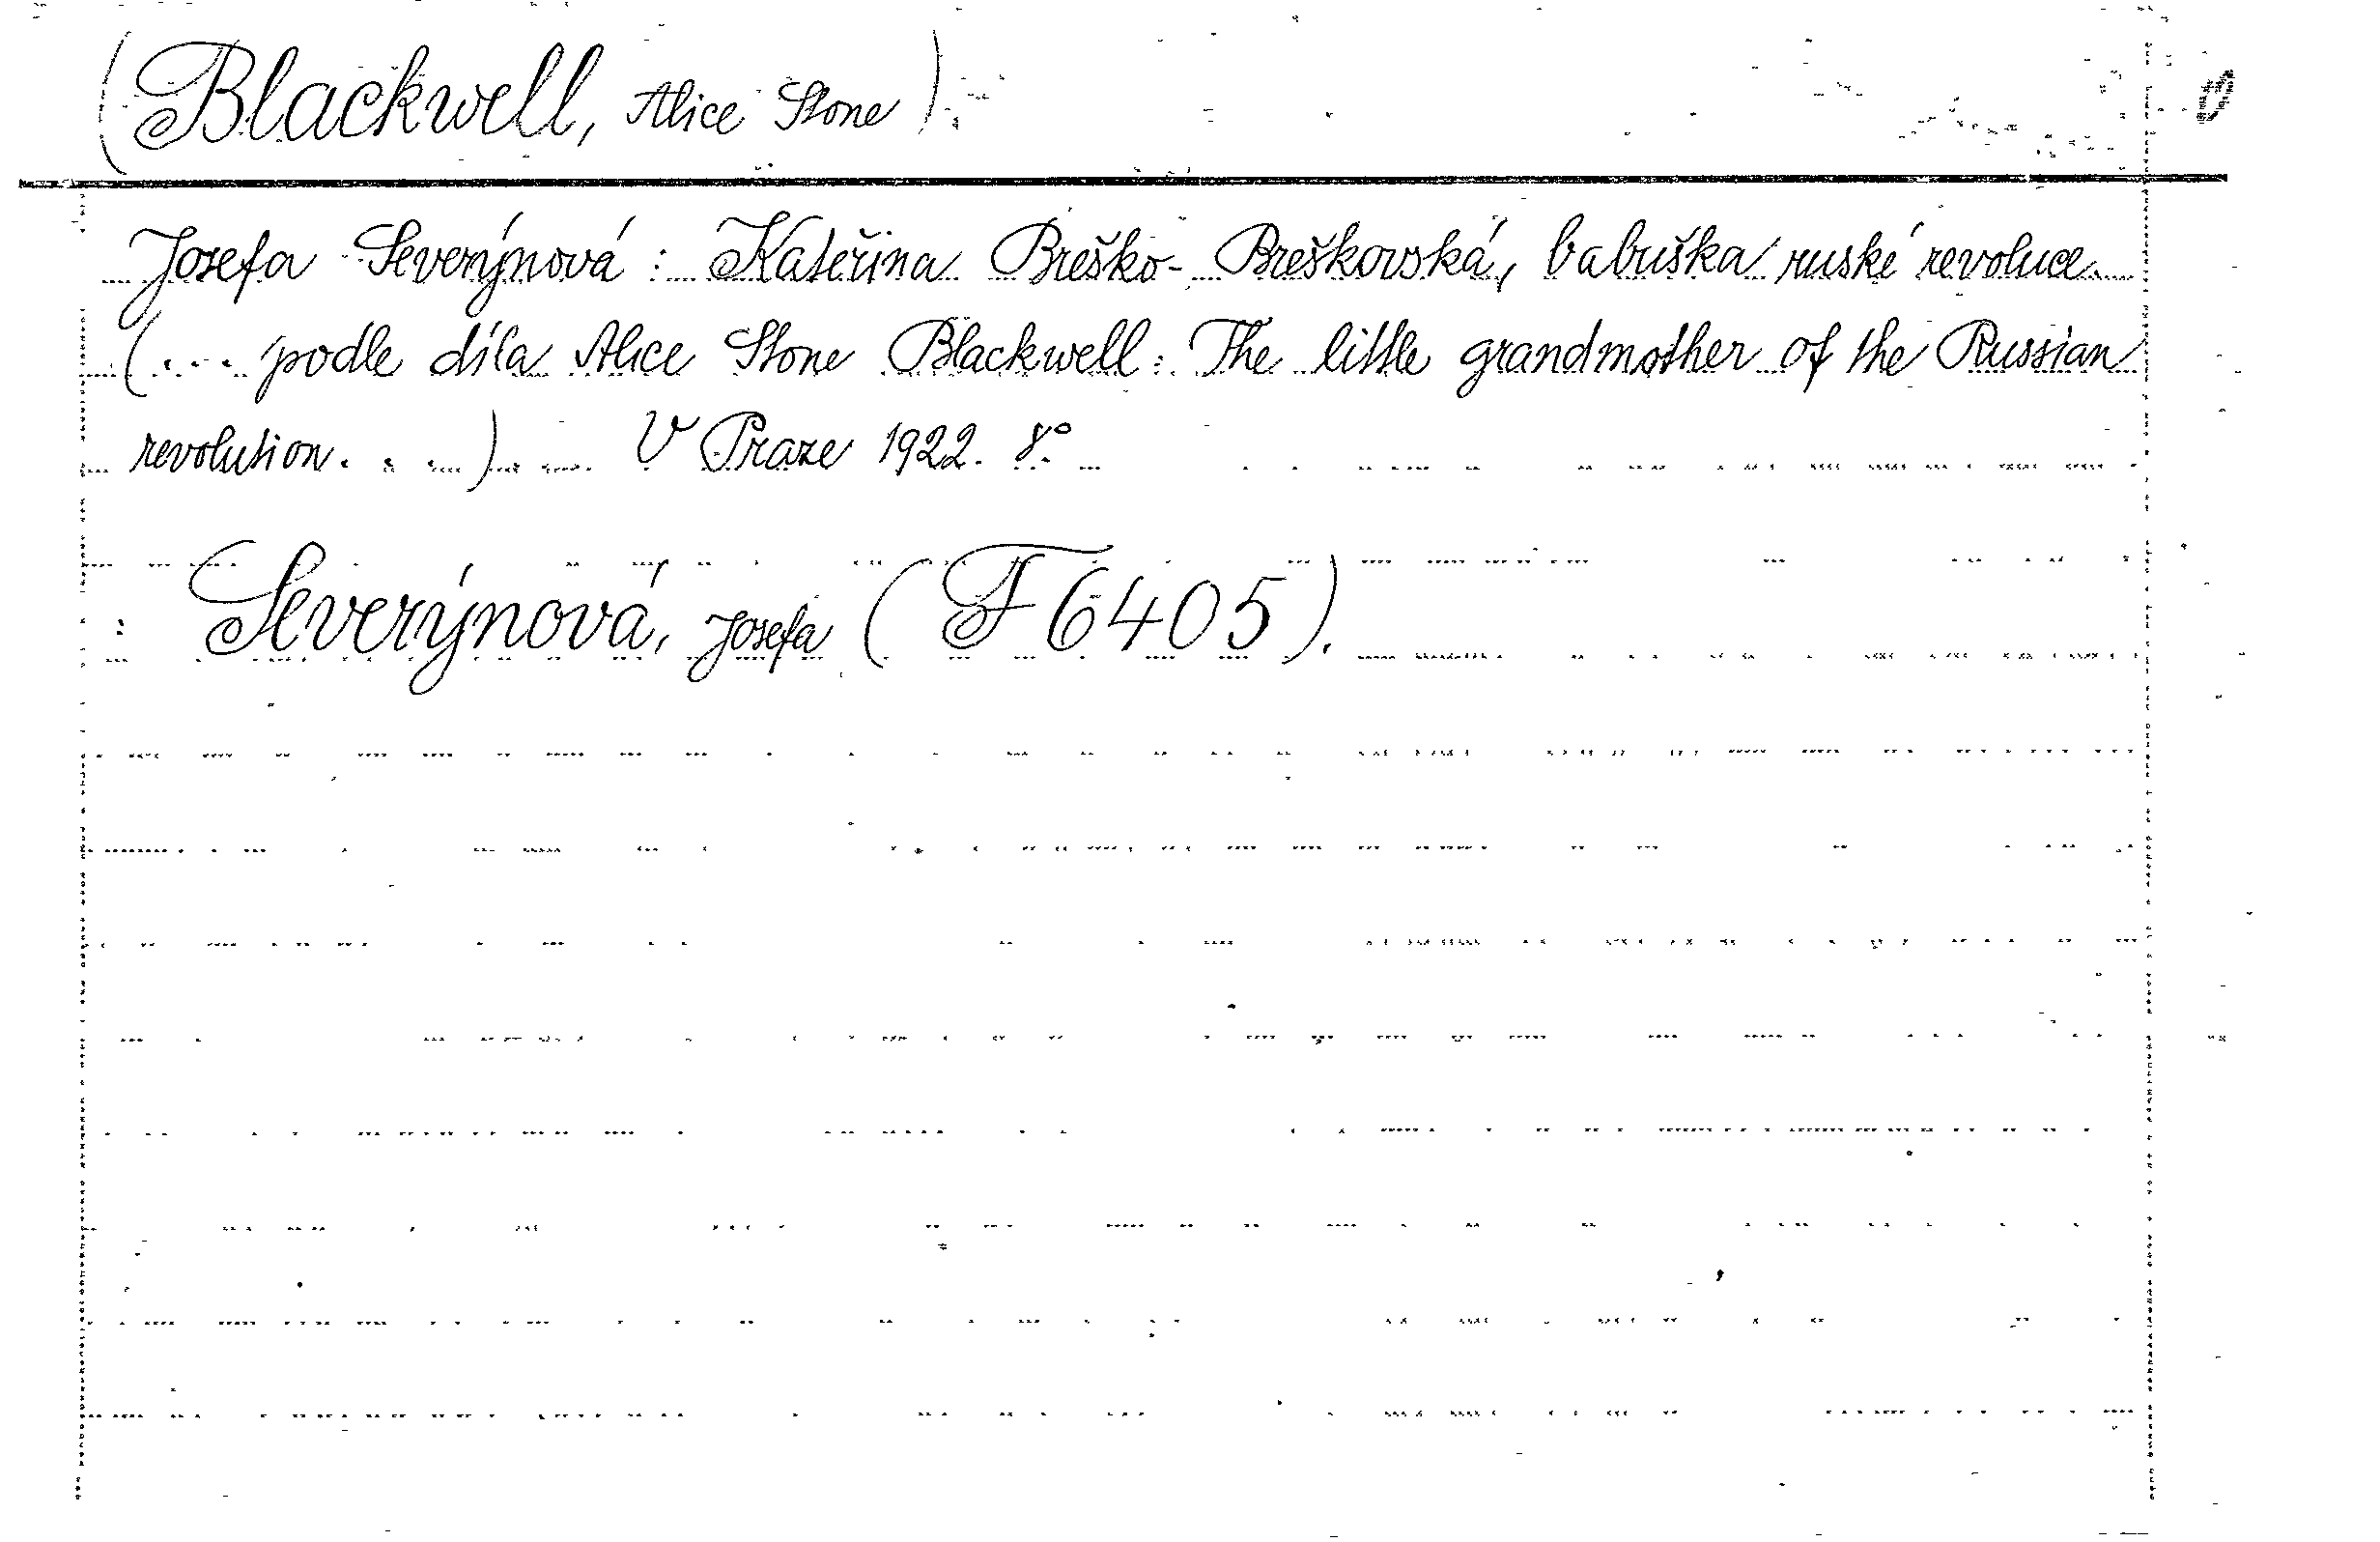 (Blackwell, Alice Stone).
Josefa Severýnová: Kateřina Breško-Breškovská, babuška ruské revoluce.
(... podle díla Alice Stone Blackwell: The little grandmother of the Russian
revolution. . .) V Praze 1922. 8°.
: Severýnová, Josefa (F 6405).